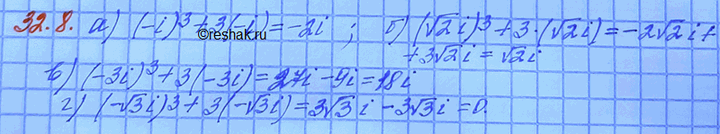 32.8. а) (-i)³+3(-i)=-2i ; б) (√2i)³+3·(√2i)=-2√2i+
©reshak.ru
+3√2i=√2i
в) (-3i)³+3(-3i)=27i-9i=18i
г) (-√3i)³+3(-√3i)=3√3i-3√3i=0.